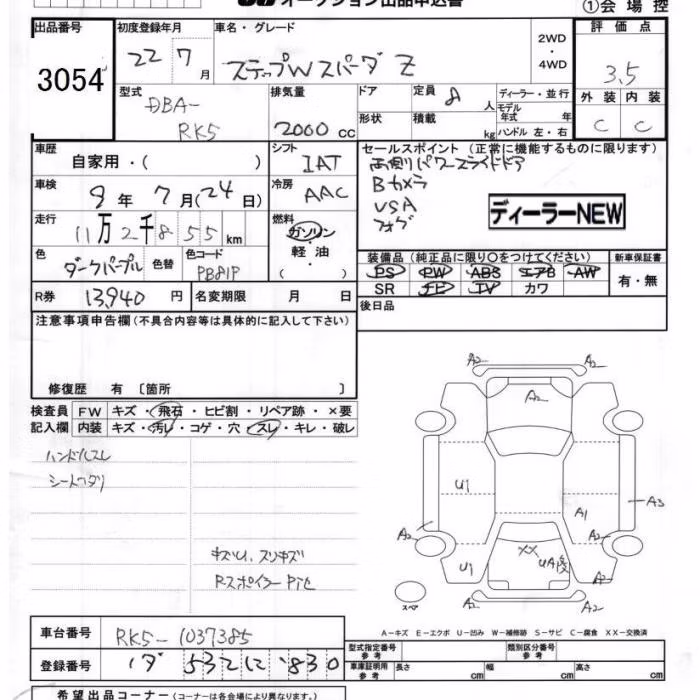 オークション出品申込書
①会場控
出品番号
3054
初度登録年月
22 7月
車名・グレード
ステップW スパーダ Z
2WD
・
4WD
評価点
3.5
型式
DBA-
RK5
排気量
2000 cc
ドア
定員 8 人
形状
積載 kg
ディーラー・並行
モデル年式 年
ハンドル 左・右
外装 内装
C C
車歴
自家用・( )
シフト
IAT
車検
9年 7月(24日)
冷房
AAC
走行
11万2千855 km
燃料
ガソリン
・
軽・油
( )
色
ダークパープル
色替
色コード
PB81P
R券 13,940 円
名変期限 月 日
セールスポイント (正常に機能するものに限ります)
両側パワースライドドア
Bカメラ
VSA
フォグ
ディーラーNEW
装備品 (純正品に限り○をつけてください)
PS PW ABS エアB AW
SR ナビ TV カワ
新車保証書
有・無
後日品
注意事項申告欄 (不具合内容等は具体的に記入して下さい)
修復歴 有 〔箇所 〕
検査員
記入欄
FW キズ・飛石・ヒビ割・リペア跡・×要
内装 キズ・汚れ・コゲ・穴・スレ・キレ・破レ
ハンドルスレ
キズU、スリキズ
A2
A2
A2
U1
A3
A1
A2
A2
U1
XX
A2
A2
スペア
A-キズ E-エクボ U-凹み W-補修跡 S-サビ C-腐食 XX-交換済
車台番号
RK5-1037385
登録番号
型式指定番号
参考
類別区分番号
参考
車庫証明用
参考
長さ cm
幅 cm
高さ cm
希望出品コーナー (コーナーは各会場により異なります。)